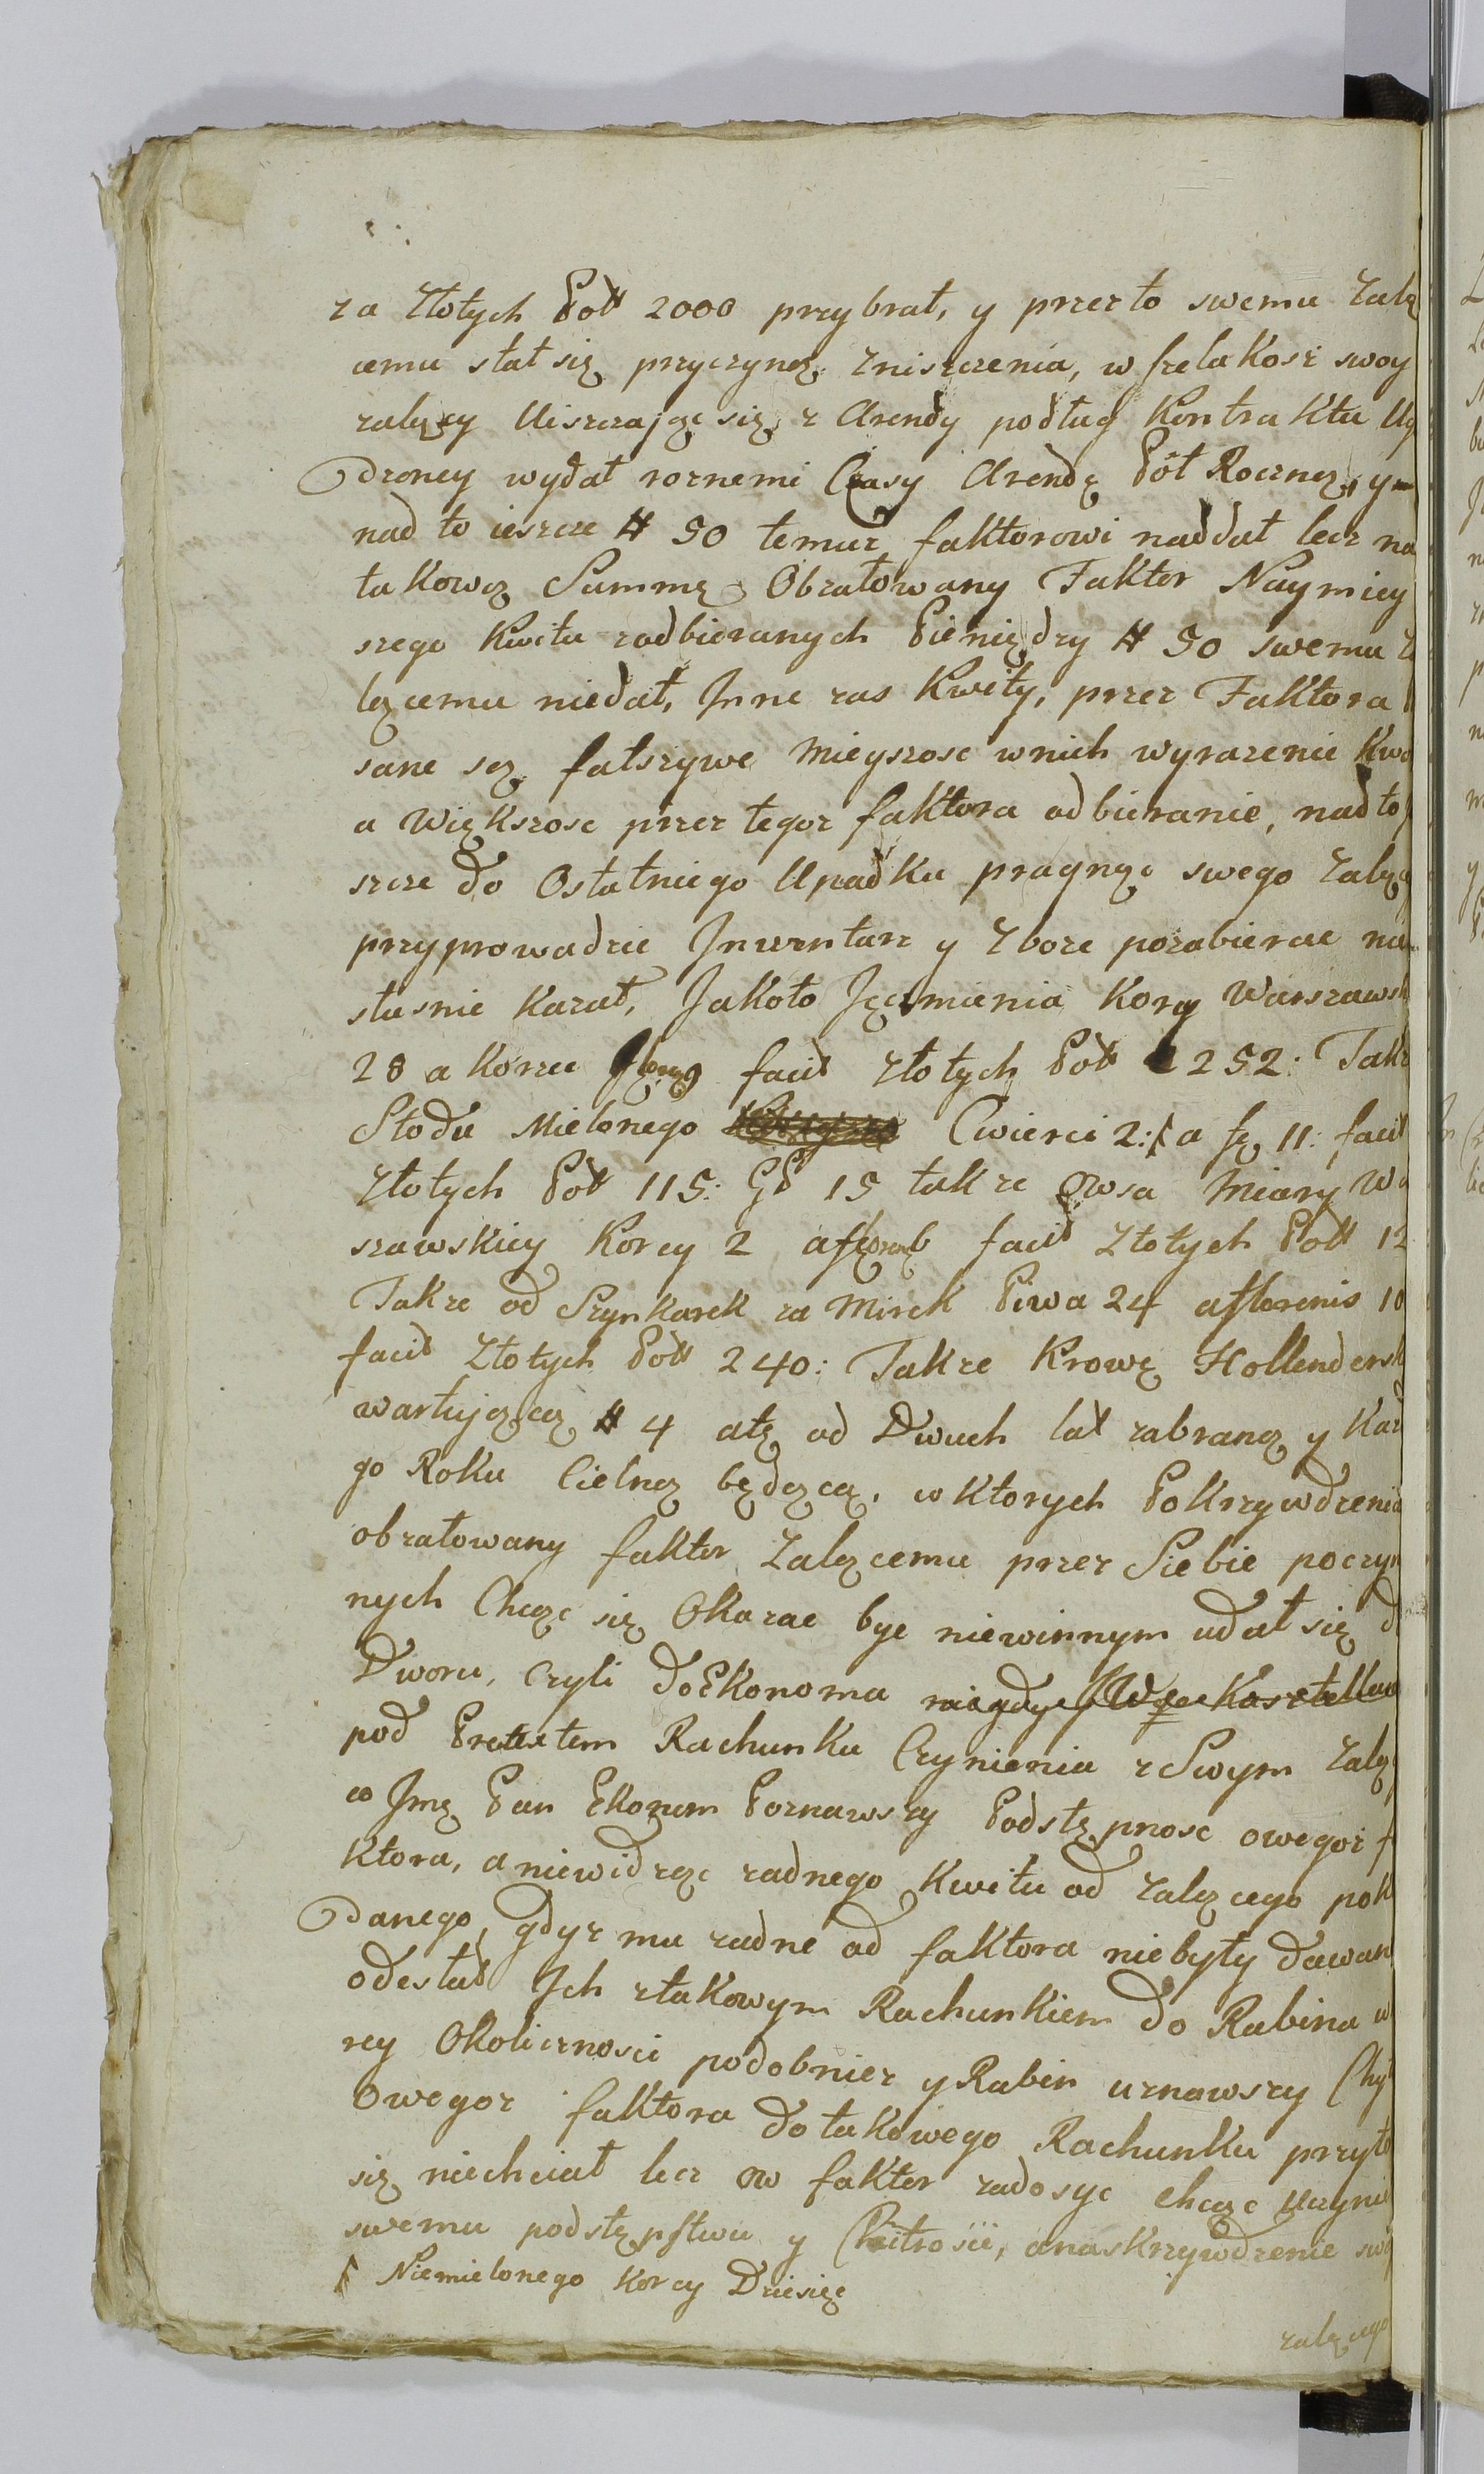 za Złotych Pols 2000 przybrał, y przez to swemu Zalą
cemu stał się przyczyną zniszczenia, wszelakosz swoy
zalący Uiszczając się z Arendy podług Kontraktu Ug
Odzoney wydał roznemi Czasy Arendę Pół Roczną, y
nad to ieszcze # 50 temuz faktorowi naddał lecz na
takową Summę Obzałowany Faktor Naymiey
szego Kwitu zodbieranych Pieniędzy # 50 swemu Z
lącemu niedał, Inne zas Kwity, przez Faktora
sane są fałszywe Mieyszosc wnich wyrazenie Kwo
a Większosc przez tegoz faktora odbieranie, nadto
szcze do Ostatniego Upadku pragnąc swego Zalą
przyprowadzic Inwentarz y Zboze pozabierac nie
słusnie Kazał, Jakoto Jęczmienia Korcy Warszawsk
28 a Korzec facit Złotych Pols 252: Takz
Słodu Mielonego Cwierci 2: a fl 11: facit
Złotych Pols 115: GP 15 takze Owsa Miary Wa
szawskiey Korcy 2 a floren 6 facit Złotych Pols 12
Takze od Szynkarek za Mirek Piwa 24 a florenis 10
facit Złotych Pols 240: Takze Krowę Hollendersk
wartującą # 4 atę od Dwuch lat zabraną y Kaz
go Roku Cielną będącą, w Ktorych Pokrzywdzenia
obzałowany faktor Zalącemu przez Siebie poczyn
nych Chcąc się Okazac byc niewinnym udał się d
Dworu, Czyli do Ekonoma
pod Pretextem Rachunku Czynienia z Swym Zalą
co Jmę Pan Ekonom Poznawszy Podstępnosc owegoz f
Ktora, a niewidząc zadnego Kwitu od Zalącego pok
Odanego, gdyz mu zadne od faktora niebyły dawan
odesłał Ich ztakowym Rachunkiem do Rabina w
rey Okolicznosci podobniez y Rabin uznawszy Chyt
Owegoz faktora do takowego Rachunku przyto
się niechciał lecz ow faktor zadosyc chcąc Uczyni
swemu podstępstwu y Chitrosii, a naskrzywdzenie swo
Niemielonego Korcy Dziesięc
zalącego